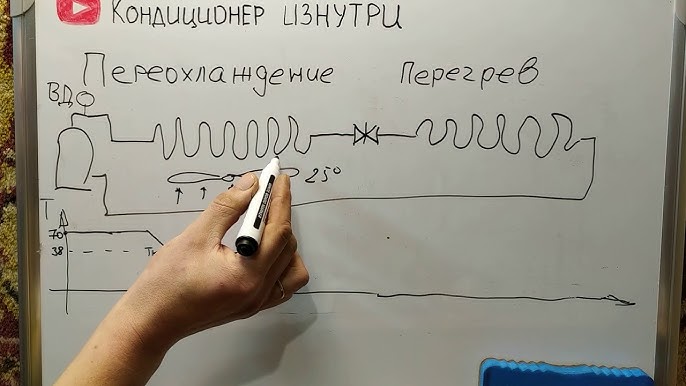 Кондиционер ИЗНУТРИ
Переохлаждение Перегрев
ВД
25°
Т
70
38
Тк